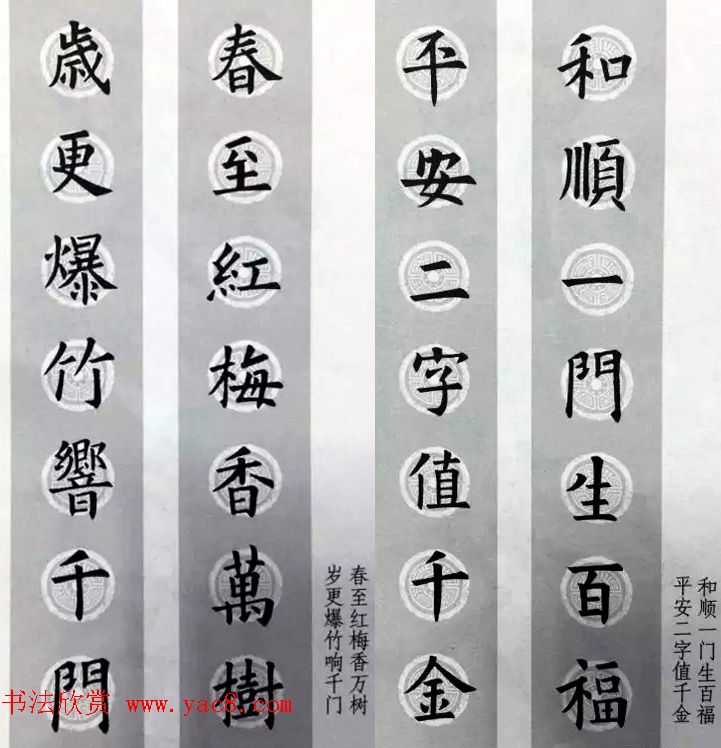 和順一門生百福
平安二字值千金
和顺一门生百福
平安二字值千金
春至紅梅香萬樹
歳更爆竹響千門
春至红梅香万树
岁更爆竹响千门
书法欣赏 www.yac8.com